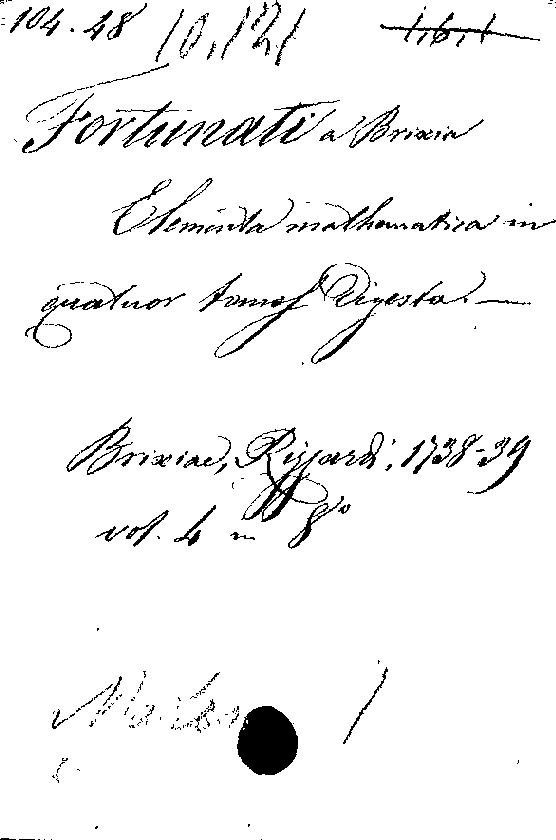 104.48 10.121 1.6.1
Fortunati a Brixia
Elementa mathematica in
quatuor tomos Digesta. —
Brixiae, Rizzardi, 1738-39
vol. 4 in 8°